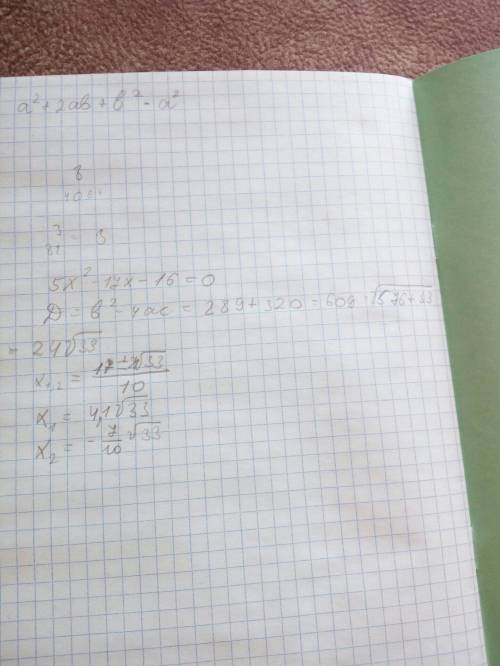 a² + 2ab + b² - a²
8
5x² - 17x - 16 = 0
D = b² - 4ac = 289 + 320 = 609 √576+33
= 24√33
x₁,₂ = 17±24√33 / 10
x₁ = 4,1√33
x₂ = - 7/10 √33